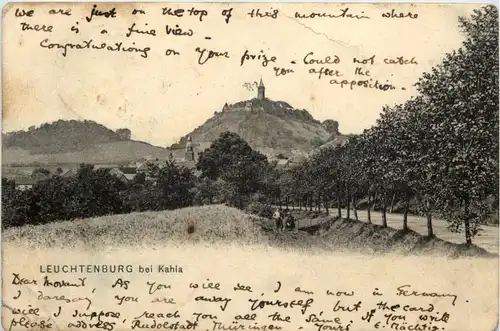 We are just on the top of this mountain where
there is a fine view –
Congratulations on your prize. Could not catch
you after the
apposition.
LEUCHTENBURG bei Kahla
Dear As you will see, I am now in Germany
I daresay you are away yourself but the card
will I suppose, reach you all the same. If you write
please address Rudolstadt Thüringen. Yours